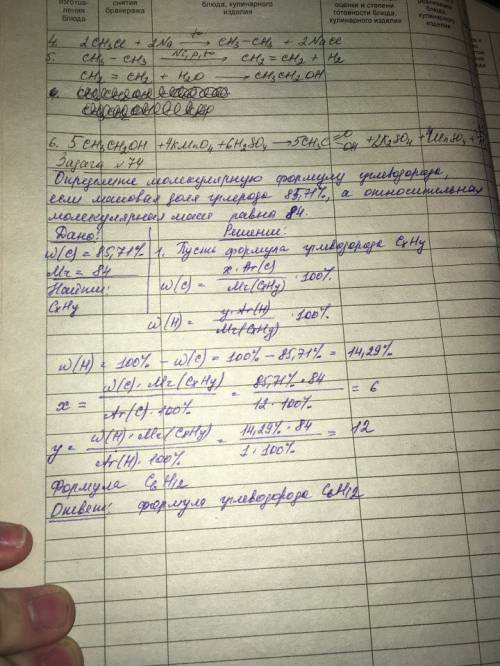 изготов- ления
снятия бракеража
блюда, кулинарного изделия
оценки и степени готовности блюда, кулинарного изделия
блюда, кулинарного
4. 2CH3Cl + 2Na —t→ CH3–CH3 + 2NaCl
5. CH3 – CH3 —Ni, p, t→ CH2 = CH2 + H2
CH2 = CH2 + H2O ⟶ CH3CH2OH
6. 5CH3CH2OH + 4KMnO4 + 6H2SO4 → 5CH3C=O OH + 2K2SO4 + 4MnSO4 +
Задача №74
Определите молекулярную формулу углеводорода,
если массовая доля углерода 85,71%, а относительная
молекулярная масса равна 84.
Дано: Решение:
W(C) = 85,71% 1. Пусть формула углеводорода CxHy
Mr = 84
Найти: W(C) = x · Ar(C) / Mr(CxHy) · 100%
CxHy
W(H) = y · Ar(H) / Mr(CxHy) · 100%
W(H) = 100% – W(C) = 100% – 85,71% = 14,29%
x = W(C) · Mr(CxHy) / Ar(C) · 100% = 85,71% · 84 / 12 · 100% = 6
y = W(H) · Mr(CxHy) / Ar(H) · 100% = 14,29% · 84 / 1 · 100% = 12
Формула C6H12
Ответ: формула углеводорода C6H12